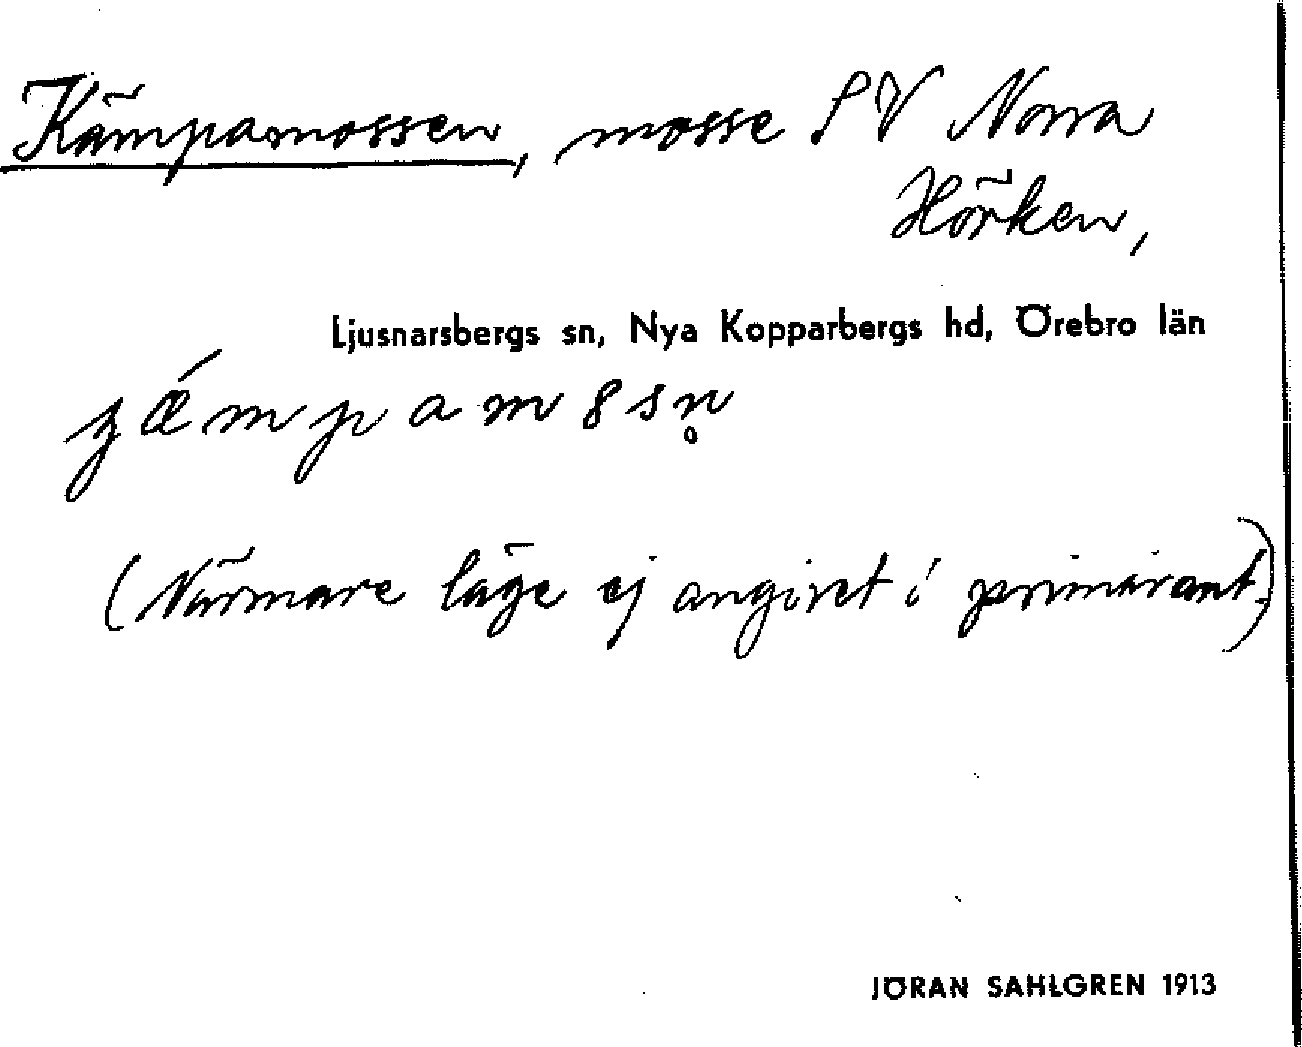 Kämpamossen, mosse SV Norra
Hörken,
Ljusnarsbergs sn, Nya Kopparbergs hd, Örebro län
(Närmare läge ej angivet i primärant.)
JÖRAN SAHLGREN 1913